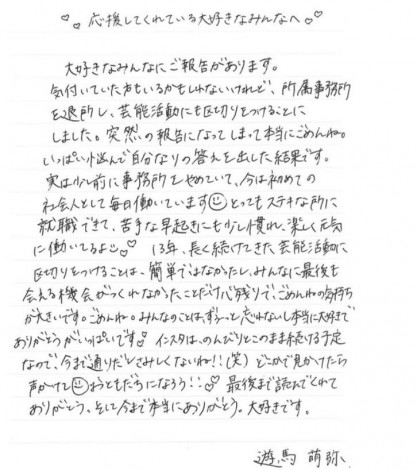 ♡♡ 応援してくれている大好きなみんなへ ♡♡
大好きなみんなにご報告があります。
気付いていた方もいるかもしれないけれど、所属事務所
を退所し、芸能活動にも区切りをつけることに
しました。突然の報告になってしまって本当にごめんね。
いっぱい悩んで自分なりの答えを出した結果です。
実は少し前に事務所をやめていて、今は初めての
社会人として毎日働いています☺とってもステキな所に
就職できて、苦手な早起きにも少し慣れ、楽しく元気
に働いてるよ♡ 13年、長く続けてきた芸能活動に
区切りをつけることは、簡単ではなかったし、みんなに最後も
会える機会がつくれなかったことだけ心残りで、ごめんねの気持ち
が大きいです。ごめんね。みんなのことは、ずぅーっと忘れないし本当に大好きで
ありがとうがいっぱいです♡ インスタは、のんびりとこのまま続ける予定
なので、今まで通りだしさみしくないね!!(笑) どこかで見かけたら
声かけて☺おともだちになろう!!♡ 最後まで読んでくれて
ありがとう。そして今まで本当にありがとう。大好きです。
遊馬 萌弥